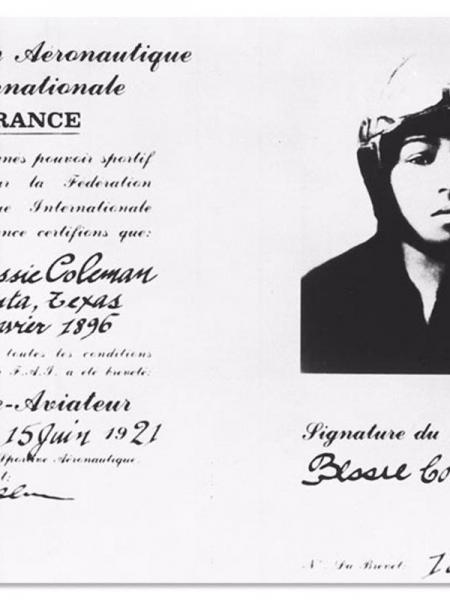 Aéronautique
rnationale
RANCE
nés pouvoir sportif
ar la Fédération
ue Internationale
nce certifions que:
ssie Coleman
nta, Texas
vrier 1896
toutes les conditions
F.A.I. a été breveté:
e-Aviateur
15 Juin 1921
Sportive Aéronautique.
Signature du
Bessie Co
N° Du Brevet: